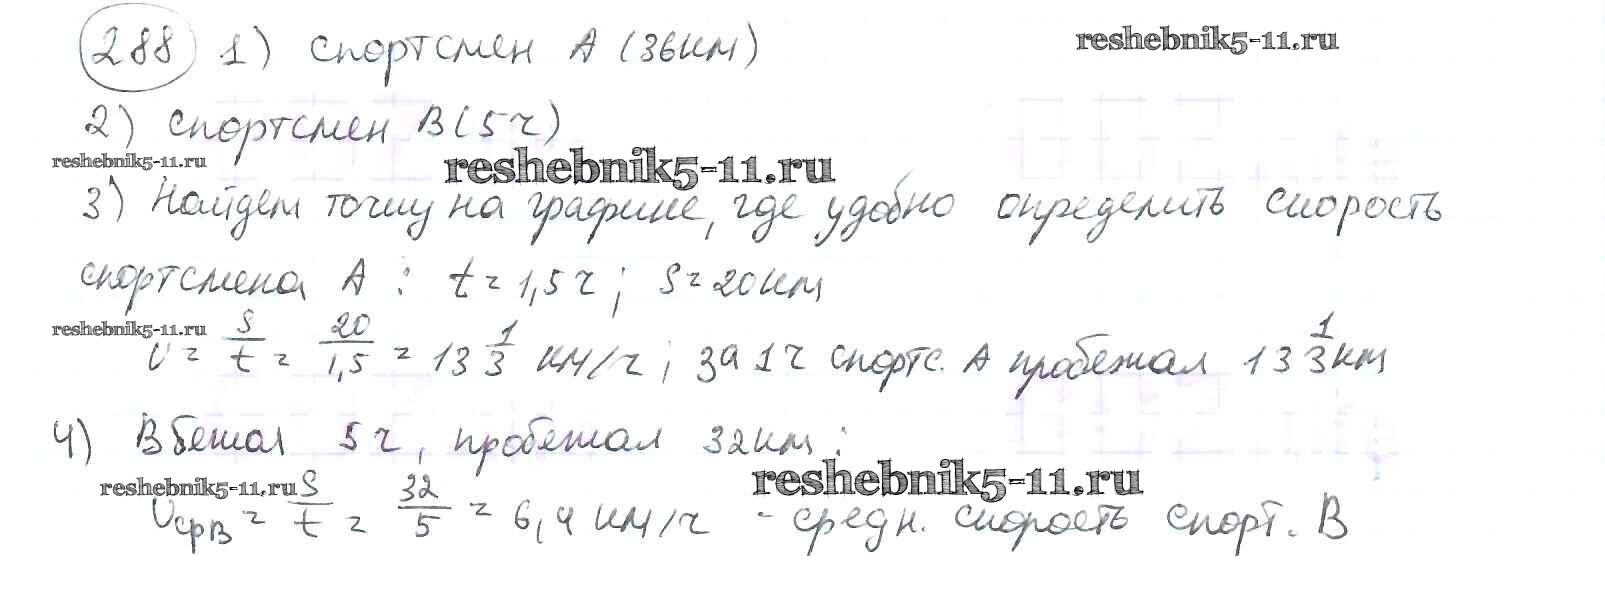 288 1) спортсмен А (36км) reshebnik5-11.ru
2) спортсмен В (5 ч)
reshebnik5-11.ru reshebnik5-11.ru
3) Найдем точку на графике, где удобно определить скорость
спортсмена А : t = 1,5 ч ; S = 20 км
reshebnik5-11.ru
v = S/t = 20/1,5 = 13 1/3 км/ч ; за 1 ч спортс. А пробежал 13 1/3 км
4) В бежал 5 ч, пробежал 32 км :
reshebnik5-11.ru reshebnik5-11.ru
v ср В = S/t = 32/5 = 6,4 км/ч - средн. скорость спорт. В